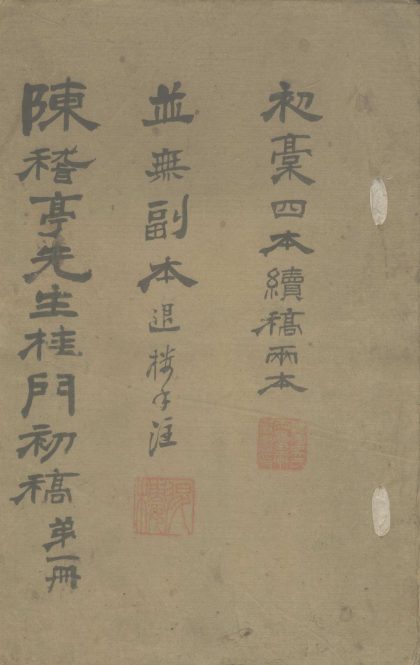 初稾四本續稿兩本
並無副本退楼手注
退樓
陳稽亭先生桂門初稿弟一冊